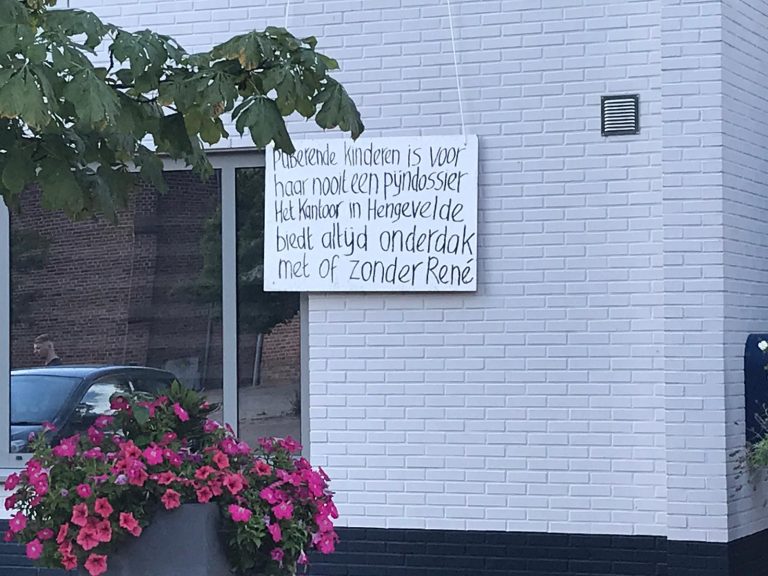 Puberende kinderen is voor
haar nooit een pijndossier
Het Kantoor in Hengevelde
biedt altijd onderdak
met of zonder René